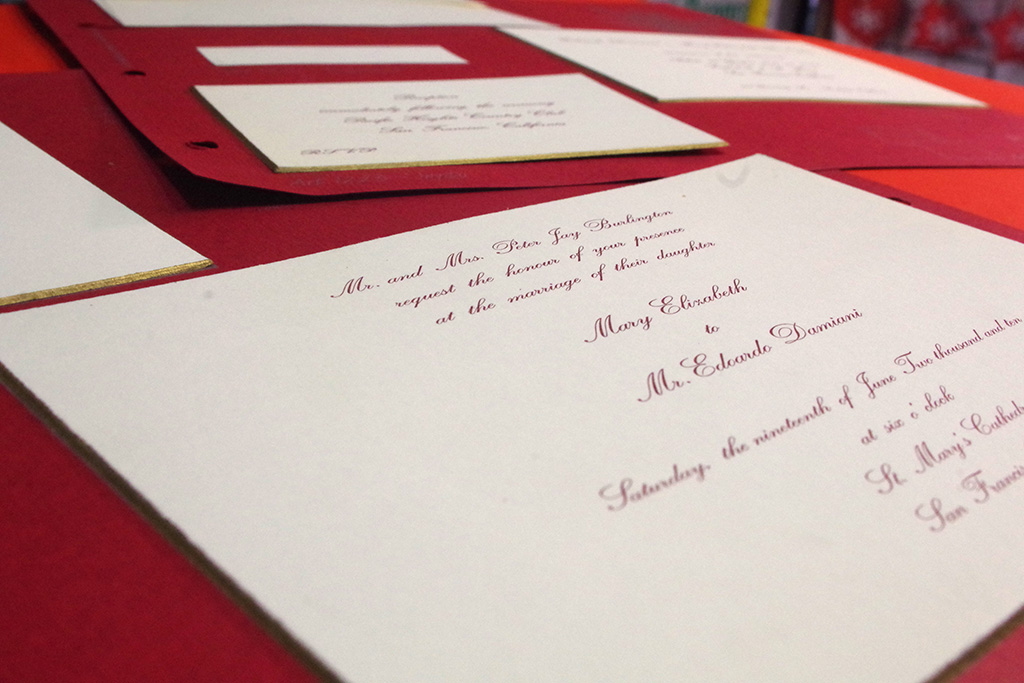 Reception
immediately following the ceremony
Pacific Heights Country Club
San Francisco, California
RSVP
Mr. and Mrs. Peter Jay Burlington
request the honour of your presence
at the marriage of their daughter
Mary Elizabeth
to
Mr. Edoardo Damiani
Saturday, the nineteenth of June Two thousand and ten
at six o'clock
St. Mary's Cathed
San Francis